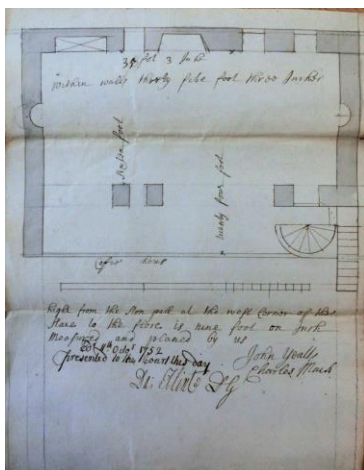 35 fot 3 Inch
within walls thirty five foot three Inches
foot
twenty four foot
Hight from the Ston at the west Corner of the
Stare to the flore is nine foot on Inch
Measured and planed by us
Edr 4th Octor 1752
presented to the Court this day
John
Charles Mack
DG